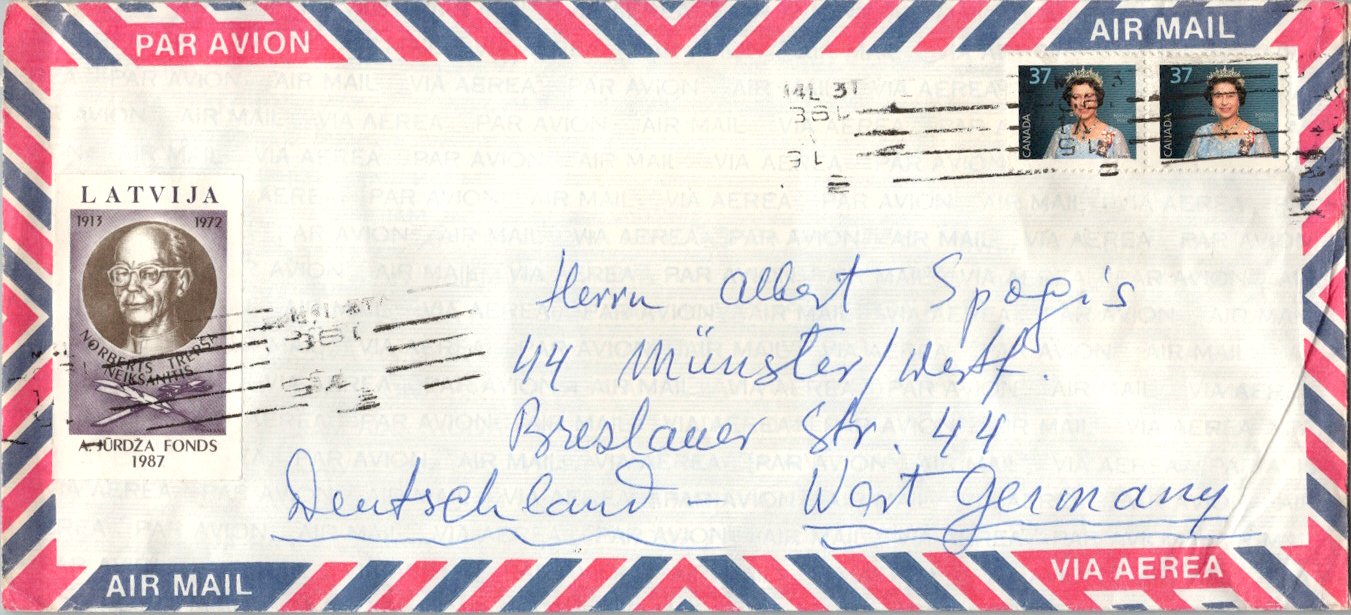 PAR AVION
AIR MAIL
37 37
CANADA CANADA
LATVIJA
1913 1972
NORBERTS NEIKŠANIETIS
TREPŠA
A. JŪRDŽA FONDS
1987
Herrn Albert Spogis
44 Münster/Westf.
Breslauer Str. 44
Deutschland – West Germany
AIR MAIL
VIA AEREA